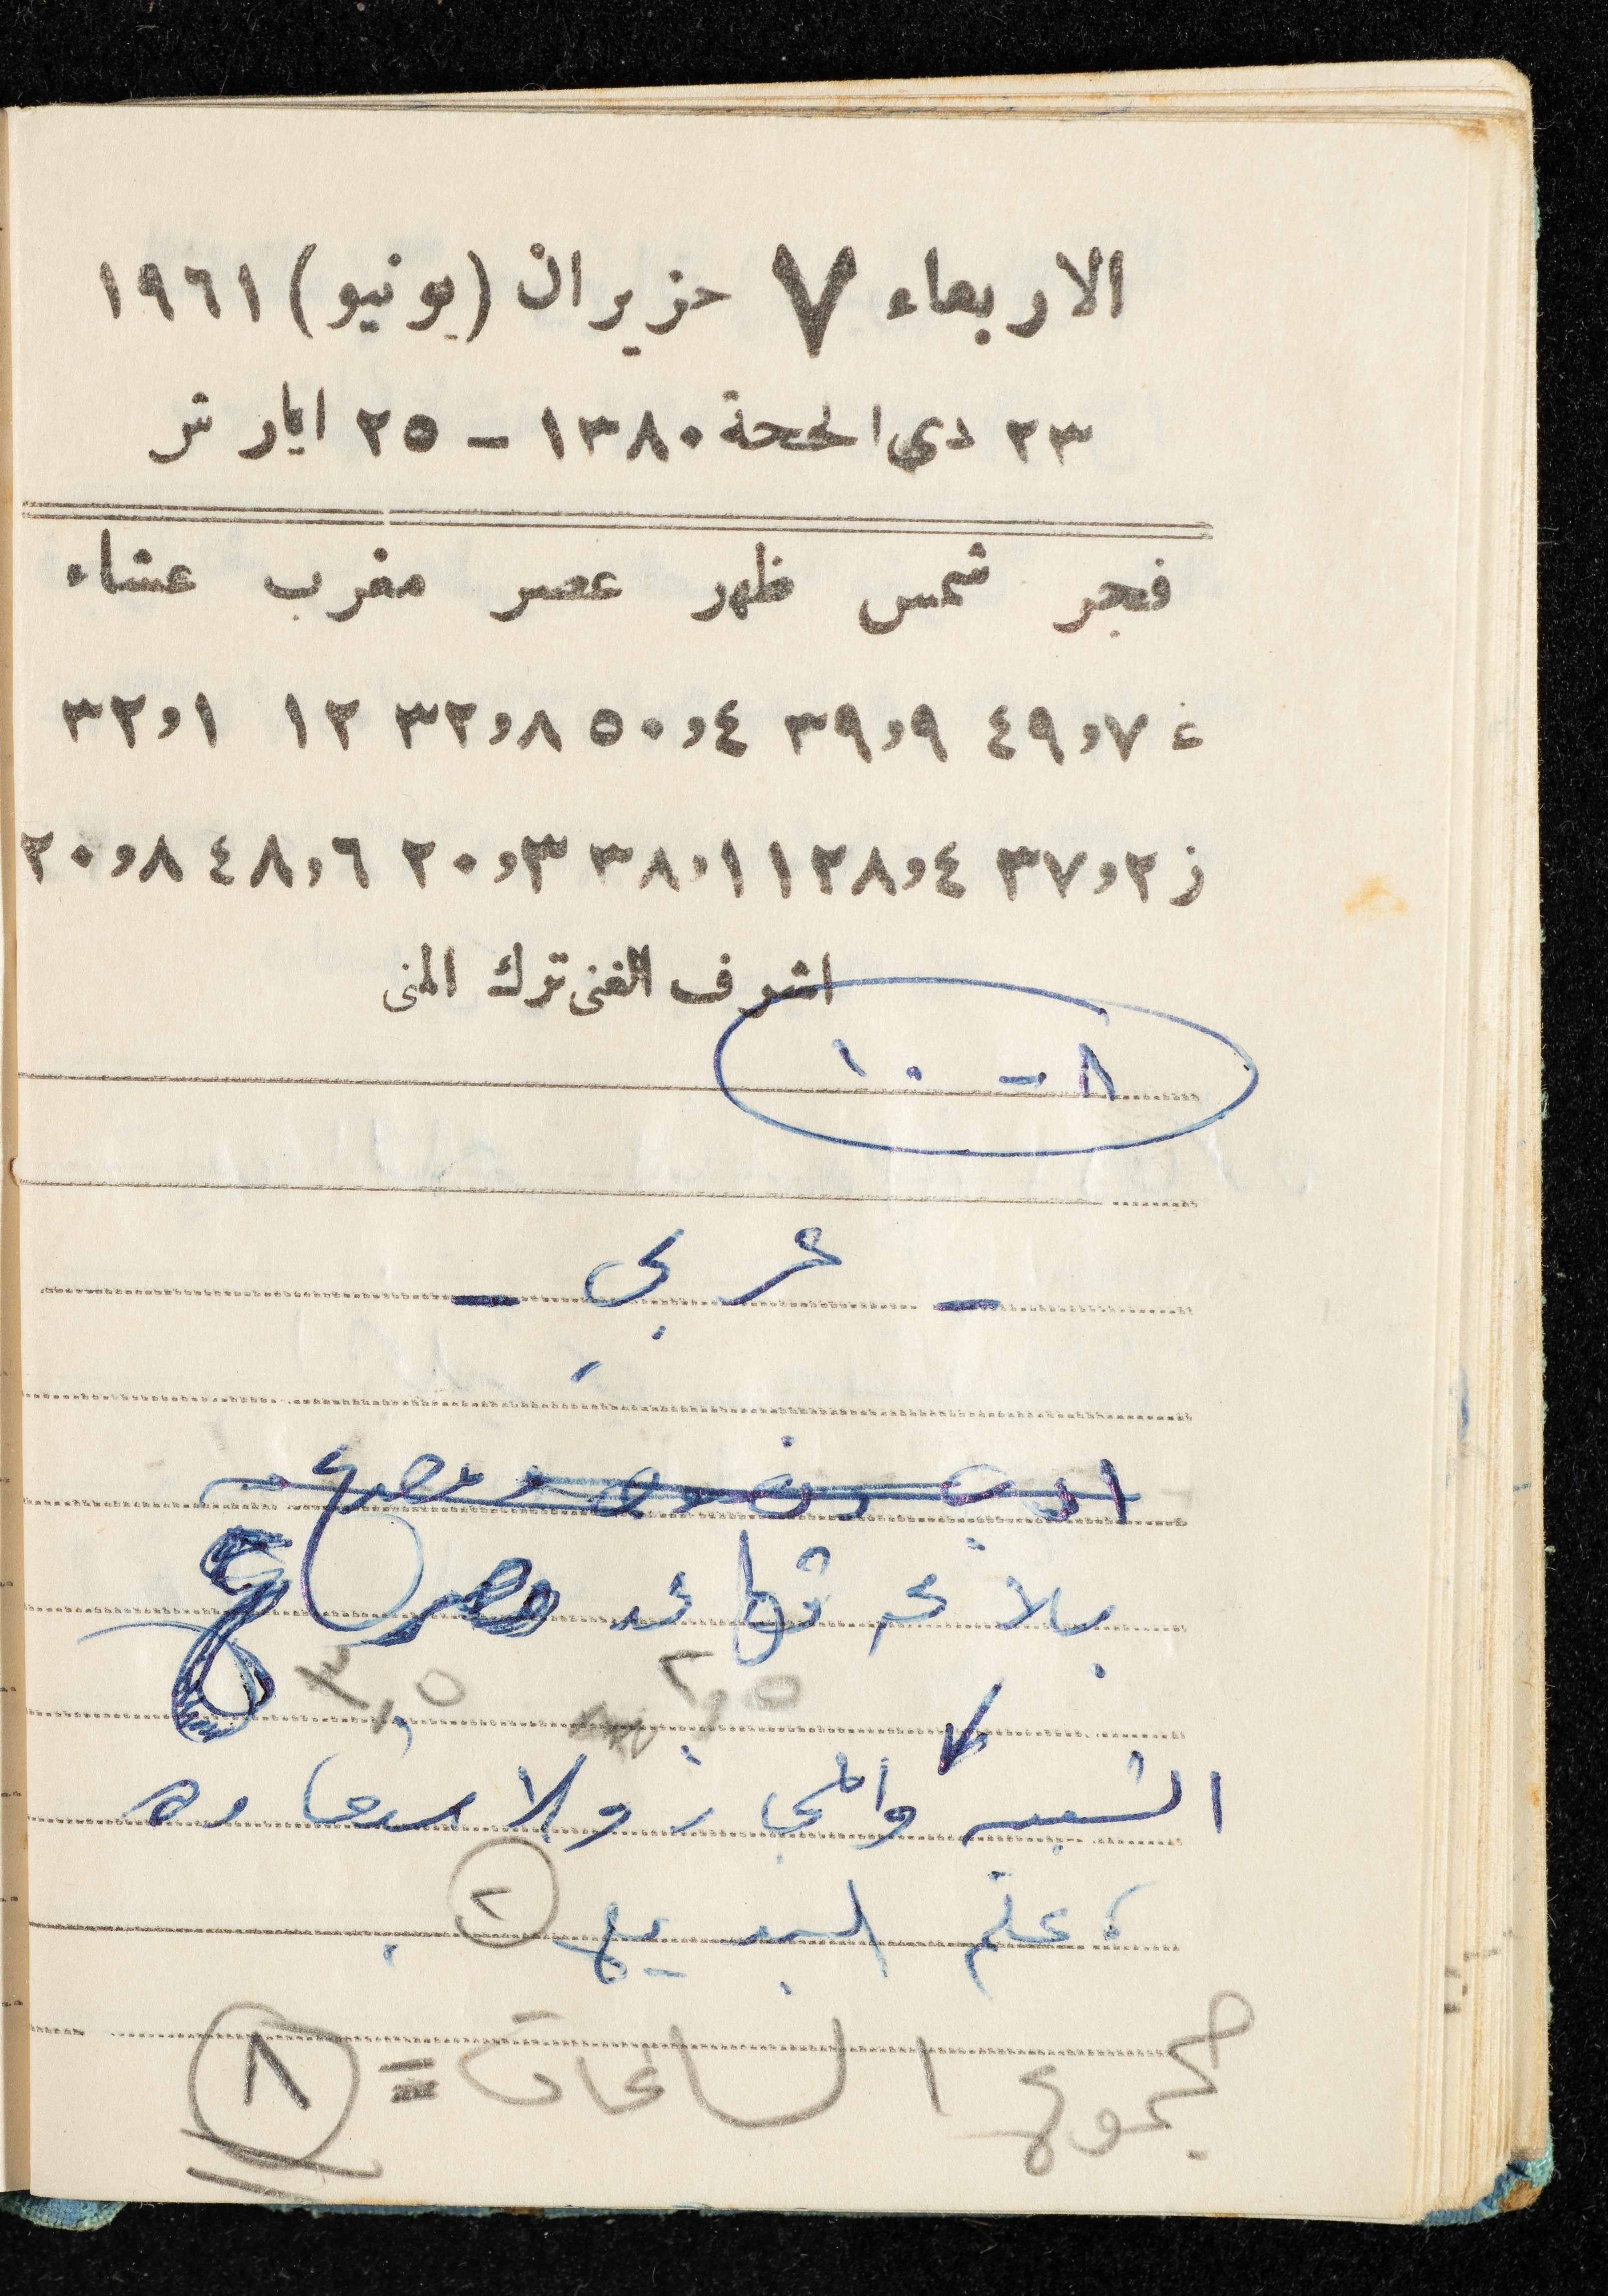 الاربعاء ٧ حزيران (يونيو) ١٩٦١
٢٣ ذي الحجة ١٣٨٠ – ٢٥ ايار شر
فجر شمس ظهر عصر مغرب عشاء
غ ٧,٤٩ ٩,٣٩ ٤,٥٠ ٨,٣٢ ١٢ ١,٣٢
ز ٢,٣٧ ٤,٢٨ ١١,٣٨ ٣,٢٠ ٦,٤٨ ٨,٢٠
اشرف الغنى ترك المنى
٨ – ١٠
– عربي –
بلاغه قواعد
٢,٥ ٢,٥
التشبيه والمجاز والاستعاره
، علم البديع ٢
مجموع الساعات = ٨